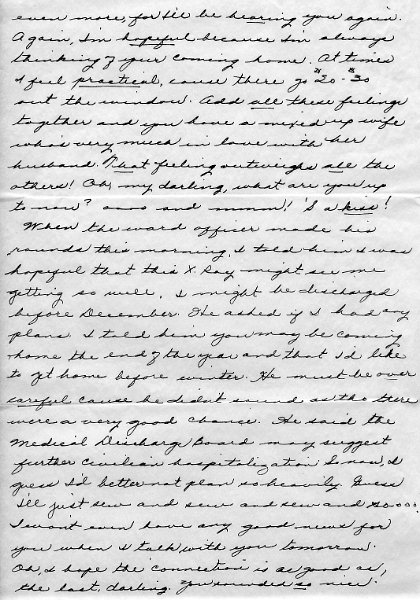 even more, for I'll be hearing you again.
Again, I'm hopeful because I'm always
thinking of your coming home. At times
I feel practical, cause there go $20 - $30
out the window. Add all these feelings
together and you have a mixed up wife
who's very much in love with her
husband. That feeling outweighs all the
others! Oh, my darling, what are you up
to now? and mmm! 'S a kiss!
When the ward officer made his
rounds this morning, I told him I was
hopeful that this X Ray might see me
getting so well, I might be discharged
before December. He asked if I had any
plans. I told him you may be coming
home the end of the year and that I'd like
to get home before winter. He must be over
careful cause he didn't sound as tho there
were a very good chance. He said the
Medical Discharge Board may suggest
further civilian hospitalization. So now, I
guess I'd better not plan so heavily. Guess
I'll just sew and sew and sew and so....
I wont even have any good news for
you when I talk with you tomorrow.
Oh, I hope the connection is as good as,
the last, darling. You sounded so nice.